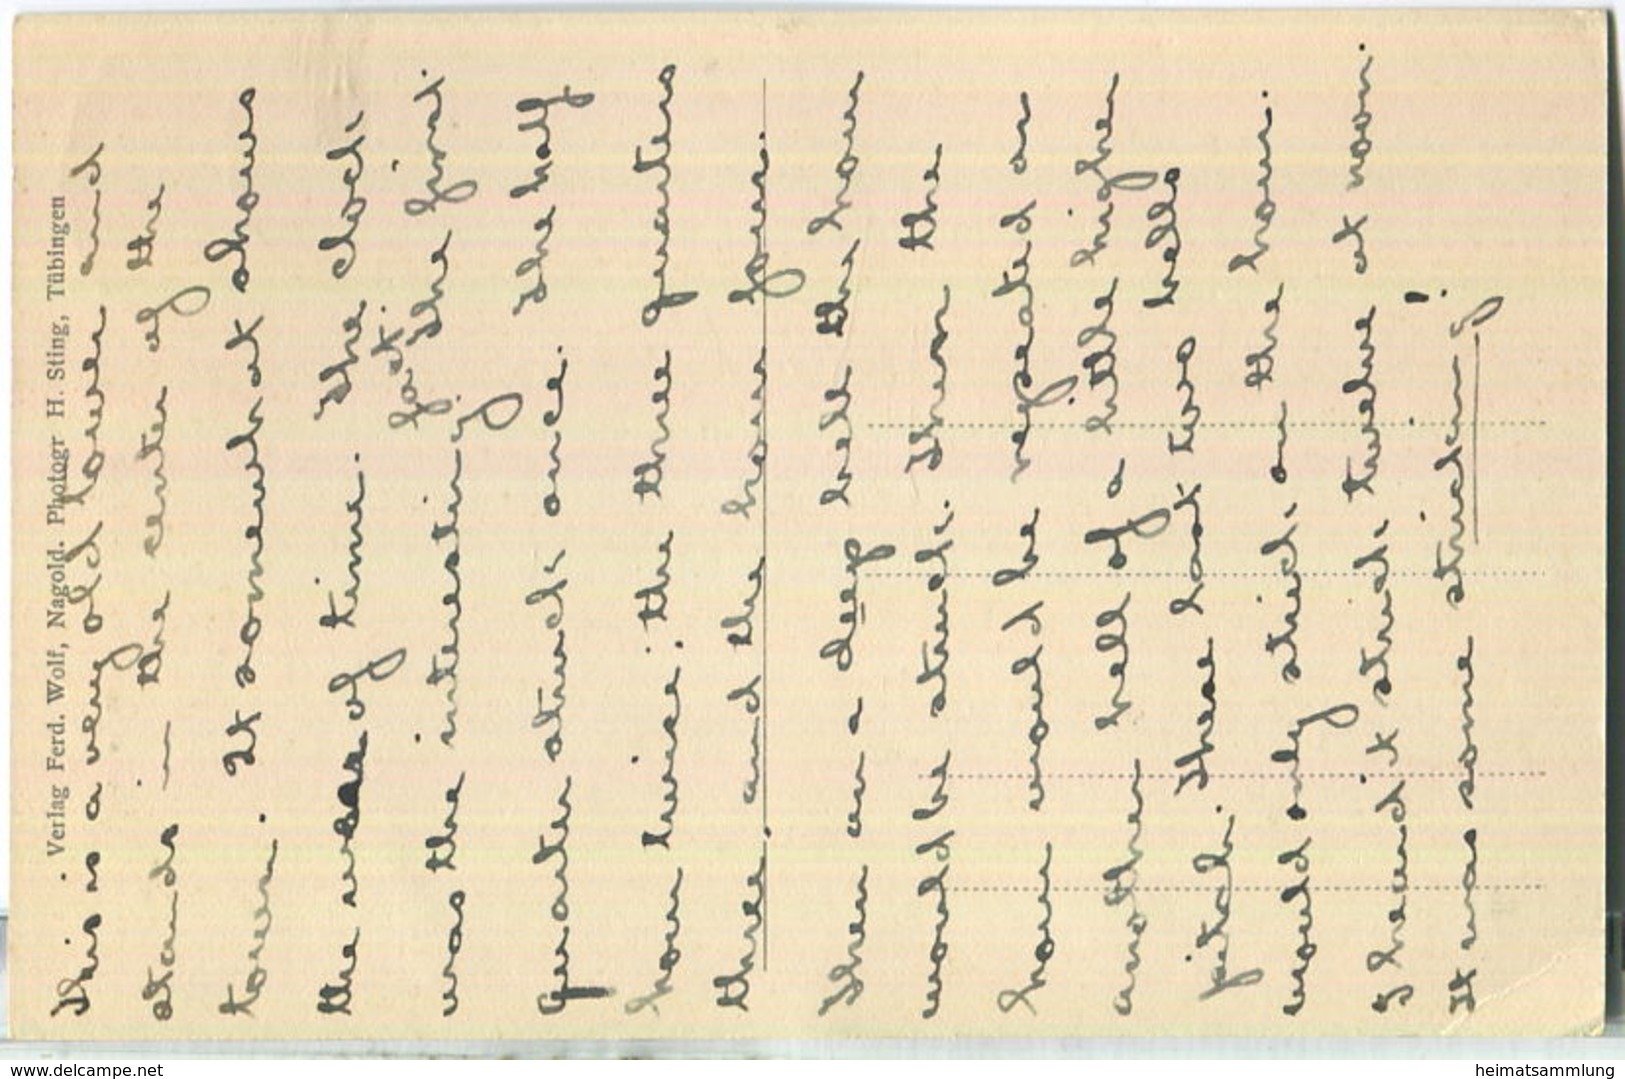 Verlag Ferd. Wolf, Nagold. Photogr H. Sting, Tübingen
This is a very old tower and
stands in the center of the
town. It somewhat shows
the wear of time. The clock
fact.
was the interesting The first
quarter struck once. The half
hour twice. the three quarters
three. and the hour four.
Then on a deep bell the hour
would be struck. Then the
hour would be repeated on
another bell of a little higher
pitch. These last two bells
would only strick on the hour.
I heard it struck twelve at noon.
It was some stricking!
delcampe.net
heimatsammlung